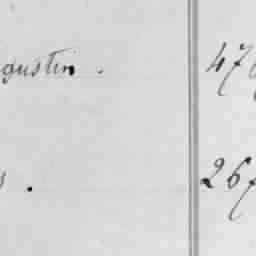 gustin . 47
s . 267